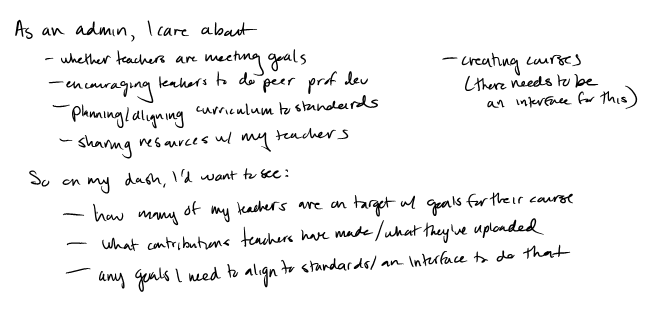 As an admin, I care about
- whether teachers are meeting goals
- encouraging teachers to do peer prof dev
- planning/aligning curriculum to standards
- sharing resources w/ my teachers
- creating courses
(there needs to be
an interface for this)
So on my dash, I'd want to see:
- how many of my teachers are on target w/ goals for their course
- what contributions teachers have made/what they've uploaded
- any goals I need to align to standards/an interface to do that